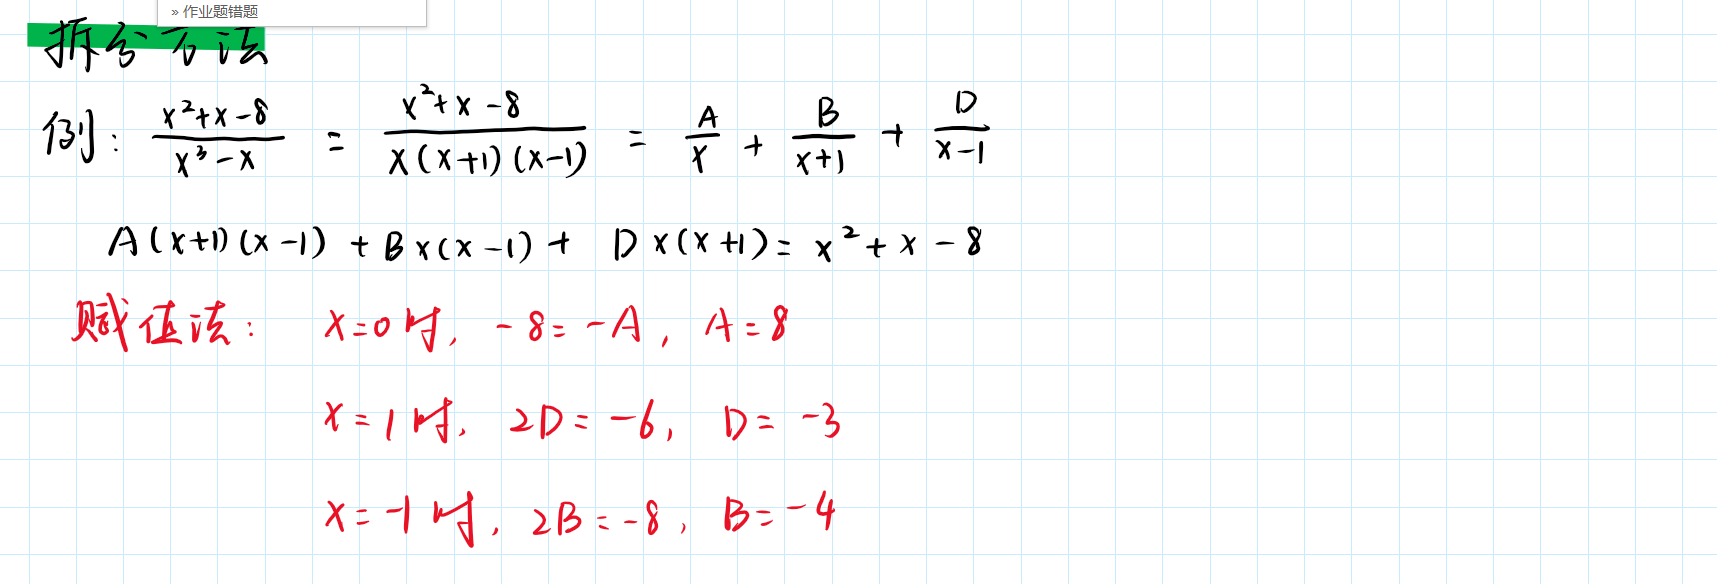 » 作业题错题
拆分方法
例: \frac{x^2+x-8}{x^3-x} = \frac{x^2+x-8}{x(x+1)(x-1)} = \frac{A}{x} + \frac{B}{x+1} + \frac{D}{x-1}
A(x+1)(x-1) + Bx(x-1) + Dx(x+1) = x^2+x-8
赋值法: x=0时, -8=-A, A=8
x=1时, 2D=-6, D=-3
x=-1时, 2B=-8, B=-4